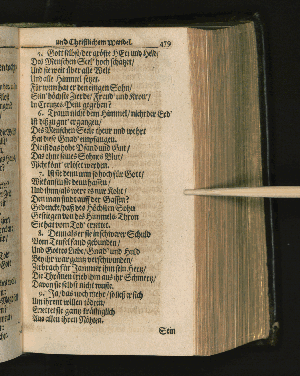 und Christlichem Wandel. 479
5. Gott selbst/ der gröste HErr und Held/
Des Menschen Seel' hoch schätzet/
Und sie weit über alle Welt
Und alle Himmel setzet.
Für wem hat er den eingen Sohn/
Sein' höchste Freude/ Freud' und Kron'/
In Creutzes-Pein gegeben?
6. Traun nicht dem Himmel/ nicht der Erd'
Ist diß zu gut' ergangen/
Des Menschen Seele theur und wehrt
Hat diese Gnad' empfangen.
Die ist das hohe Pfand und Gut/
Das ohne seines Sohnes Blut/
Nicht könt' erlöset werden.
7. Ist sie denn nun so hoch für Gott/
Wie kanst
Und ihm als wer' es nur Koht/
Den man findt auff der Gassen?
Gedencke/ daß des Höchsten Sohn
Gestiegen von des Himmels Thron
Sie hat vom Tod' errettet.
8. Denn als er sie in schwerer Schuld
Vom Teufel fand gebunden/
Und Gottes Liebe/ Gnad' und Huld
Bey ihr war gantz verschwunden/
Zubrach für Jammer ihm sein Hertz/
Die Thränen trieb ihm aus ihr Schmertz/
Davon sie selbst nicht wuste.
9. Ja/ das noch mehr/ er ließ sich
Um ihrent willen tödten/
Errettet sie gantz kräfftiglich
Aus allen ihren Nöhten.
Sein